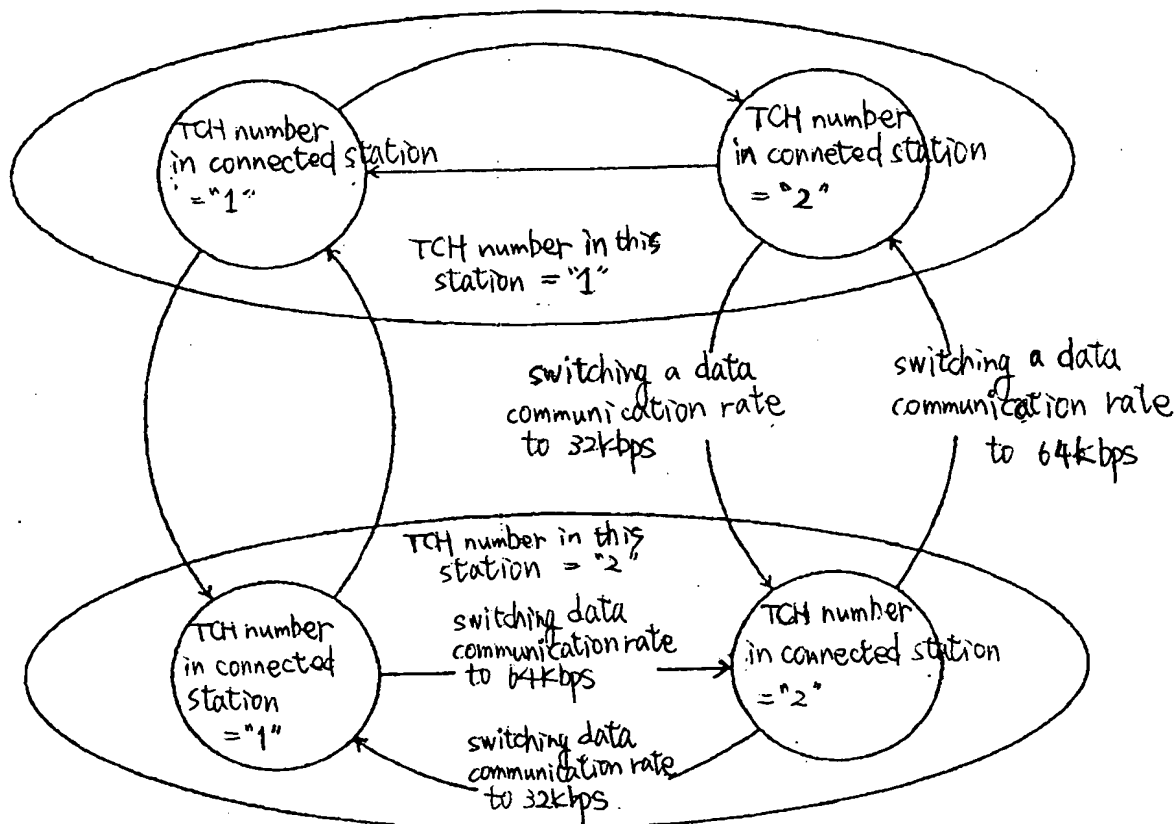 TCH number
in connected station
="1"
TCH number
in conneted station
="2"
TCH number in this
station ="1"
switching a data
communication rate
to 32kbps
switching a data
communication rate
to 64kbps
TCH number in this
station = "2"
TCH number
in connected
station
="1"
switching data
communication rate
to 64kbps
TCH number
in connected station
="2"
switching data
communication rate
to 32kbps